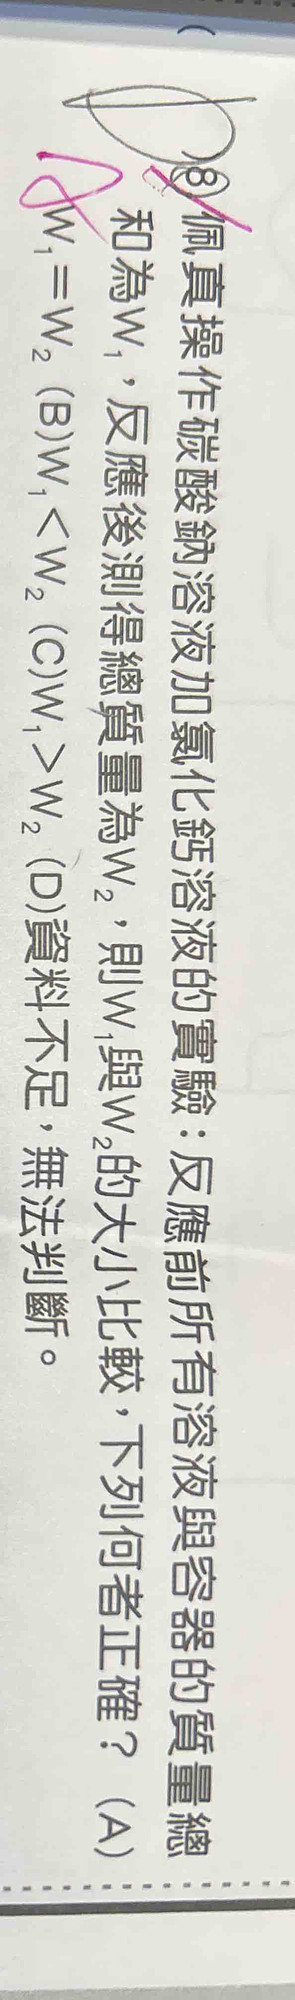 D 8 佩真操作碳酸鈉溶液加氯化鈣溶液的實驗：反應前所有溶液與容器的質量總
和為W₁，反應後測得總質量為W₂，則W₁與W₂的大小比較，下列何者正確？(A)
W₁＝W₂ (B)W₁＜W₂ (C)W₁＞W₂ (D)資料不足，無法判斷。